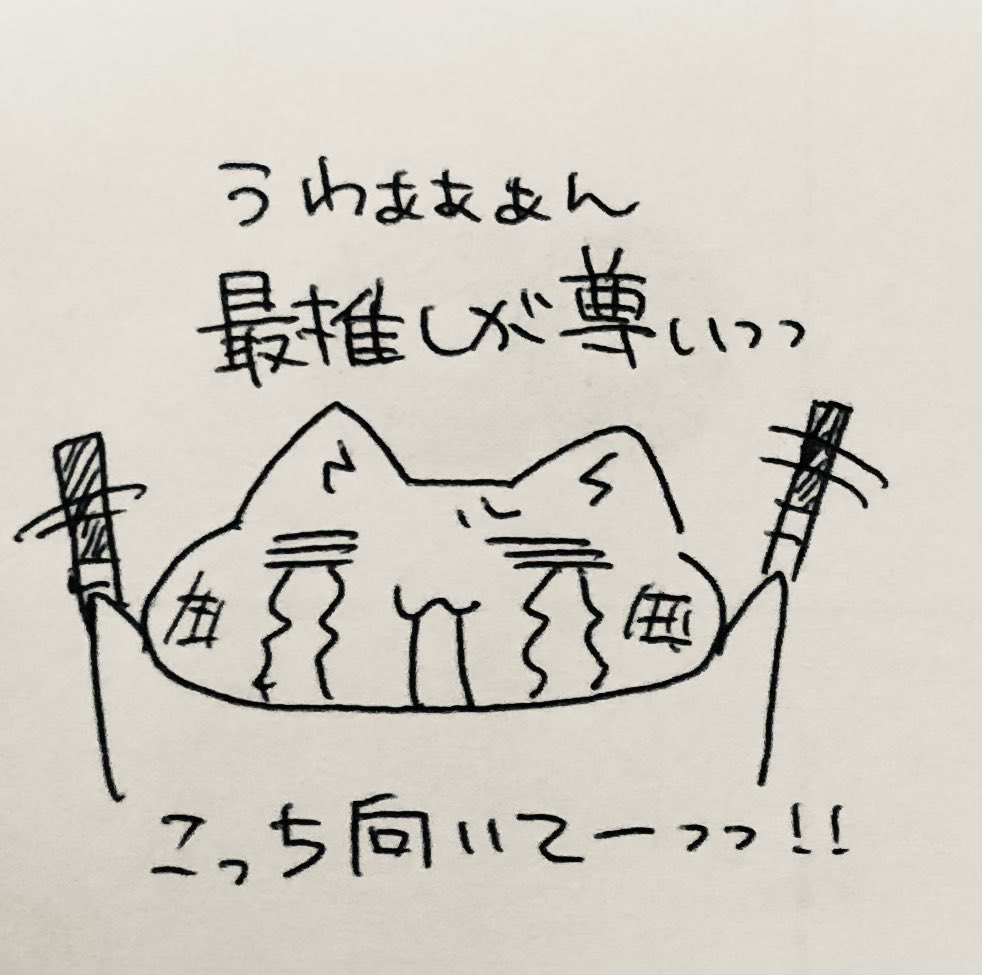 うわぁぁぁん
最推しが尊いっっ
こっち向いてーっっ!!